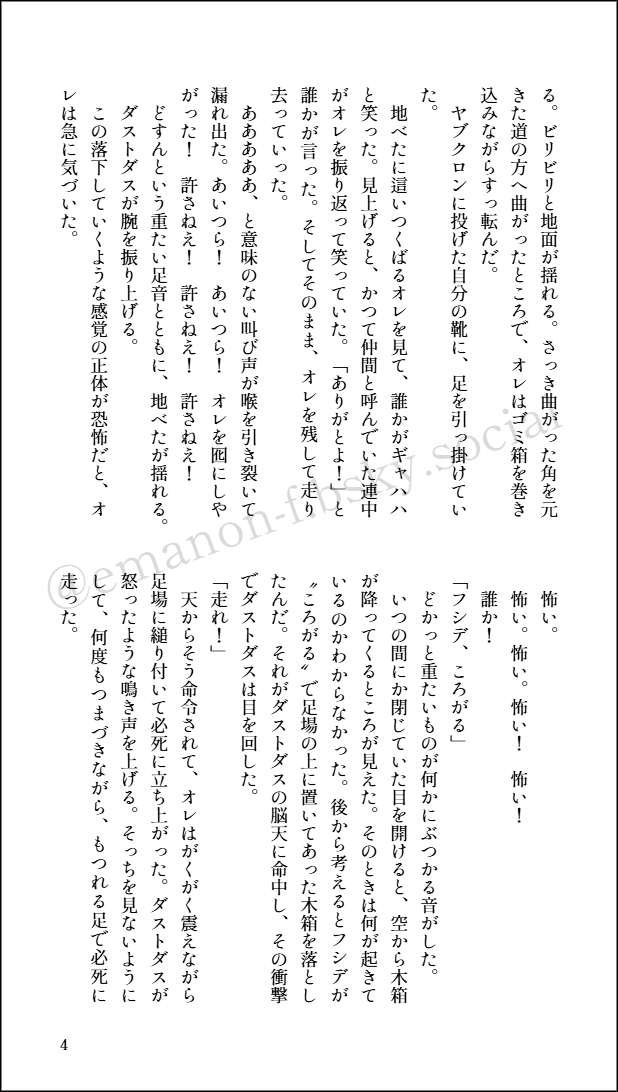 る。ビリビリと地面が揺れる。さっき曲がった角を元
きた道の方へ曲がったところで、オレはゴミ箱を巻き
込みながらすっ転んだ。
ヤブクロンに投げた自分の靴に、足を引っ掛けてい
た。
地べたに這いつくばるオレを見て、誰かがギャハハ
と笑った。見上げると、かつて仲間と呼んでいた連中
がオレを振り返って笑っていた。「ありがとよ！」と
誰かが言った。そしてそのまま、オレを残して走り
去っていった。
ああああ、と意味のない叫び声が喉を引き裂いて
漏れ出た。あいつら！　あいつら！　オレを囮にしや
がった！　許さねえ！　許さねえ！　許さねえ！
どすんという重たい足音とともに、地べたが揺れる。
ダストダスが腕を振り上げる。
この落下していくような感覚の正体が恐怖だと、オ
レは急に気づいた。
怖い。
怖い。怖い。怖い！　怖い！
誰か！
「フシデ、ころがる」
どかっと重たいものが何かにぶつかる音がした。
いつの間にか閉じていた目を開けると、空から木箱
が降ってくるところが見えた。そのときは何が起きて
いるのかわからなかった。後から考えるとフシデが
〝ころがる〟で足場の上に置いてあった木箱を落とし
たんだ。それがダストダスの脳天に命中し、その衝撃
でダストダスは目を回した。
「走れ！」
天からそう命令されて、オレはがくがく震えながら
足場に縋り付いて必死に立ち上がった。ダストダスが
怒ったような鳴き声を上げる。そっちを見ないように
して、何度もつまづきながら、もつれる足で必死に
走った。
4
@emanon-f.bsky.social